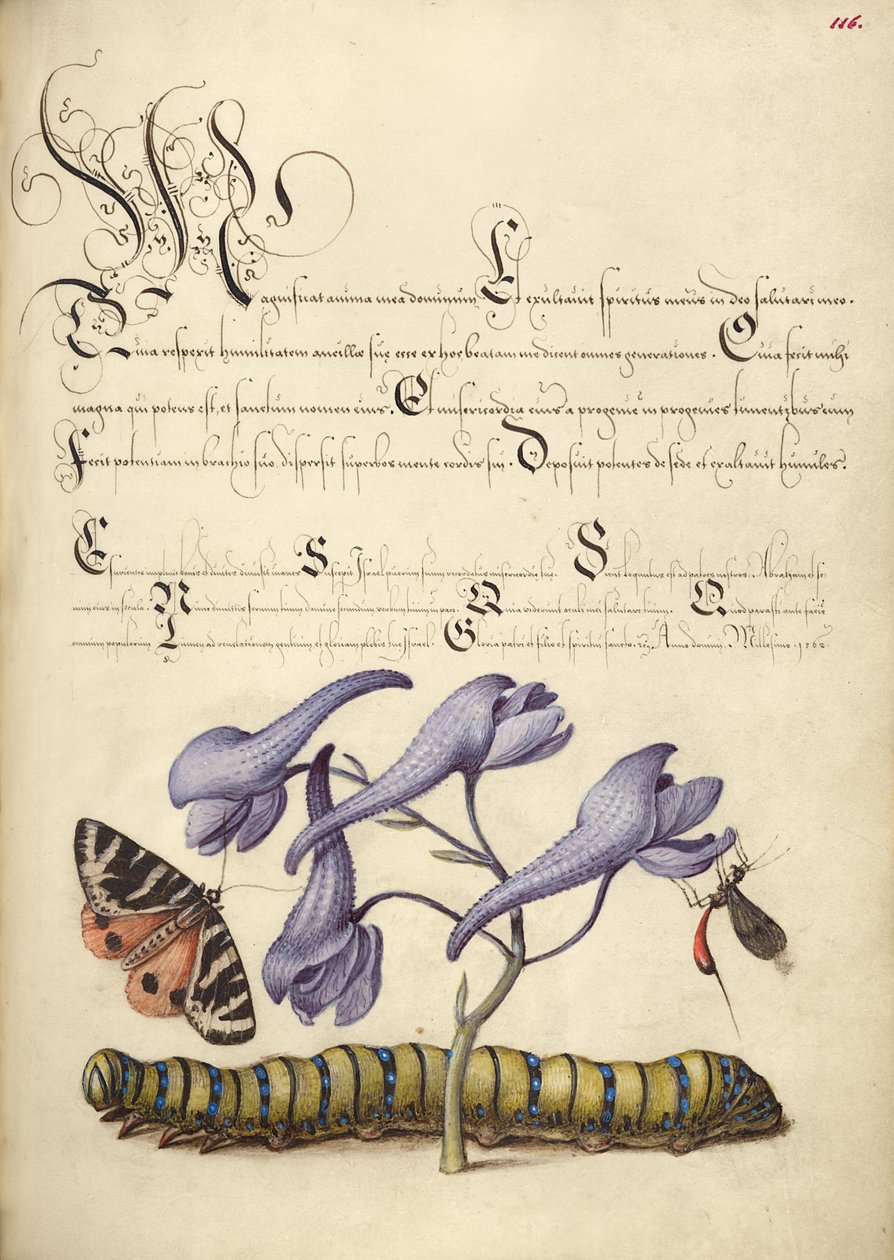 116.
Magnificat anima mea dominum Et exultavit spiritus meus in deo salutari meo.
Quia respexit humilitatem ancillæ suę ecce ex hoc beatam me dicent omnes generationes. Quia fecit mihi
magna qui potens est, et sanctum nomen eius. Et misericordia eius a progenie in progenies timentibus eum
Fecit potentiam in brachio suo, dispersit superbos mente cordis sui. Deposuit potentes de sede et exaltavit humiles.
Esurientes implevit bonis et divites dimisit inanes Suscepit Israel puerum suum recordatus misericordię suę. Sicut loquutus est ad patres nostros, Abraham et se:
mini eius in secula. Nunc dimittis servum tuum domine secundum verbum tuum in pace. Quia viderunt oculi mei salutare tuum. Quod parasti ante faciē
omnium populorum Lumen ad revelationem gentium et gloriam plebis tuę Israel. Gloria patri et filio et spiritui sancto. Anno domini Millesimo. 1562.